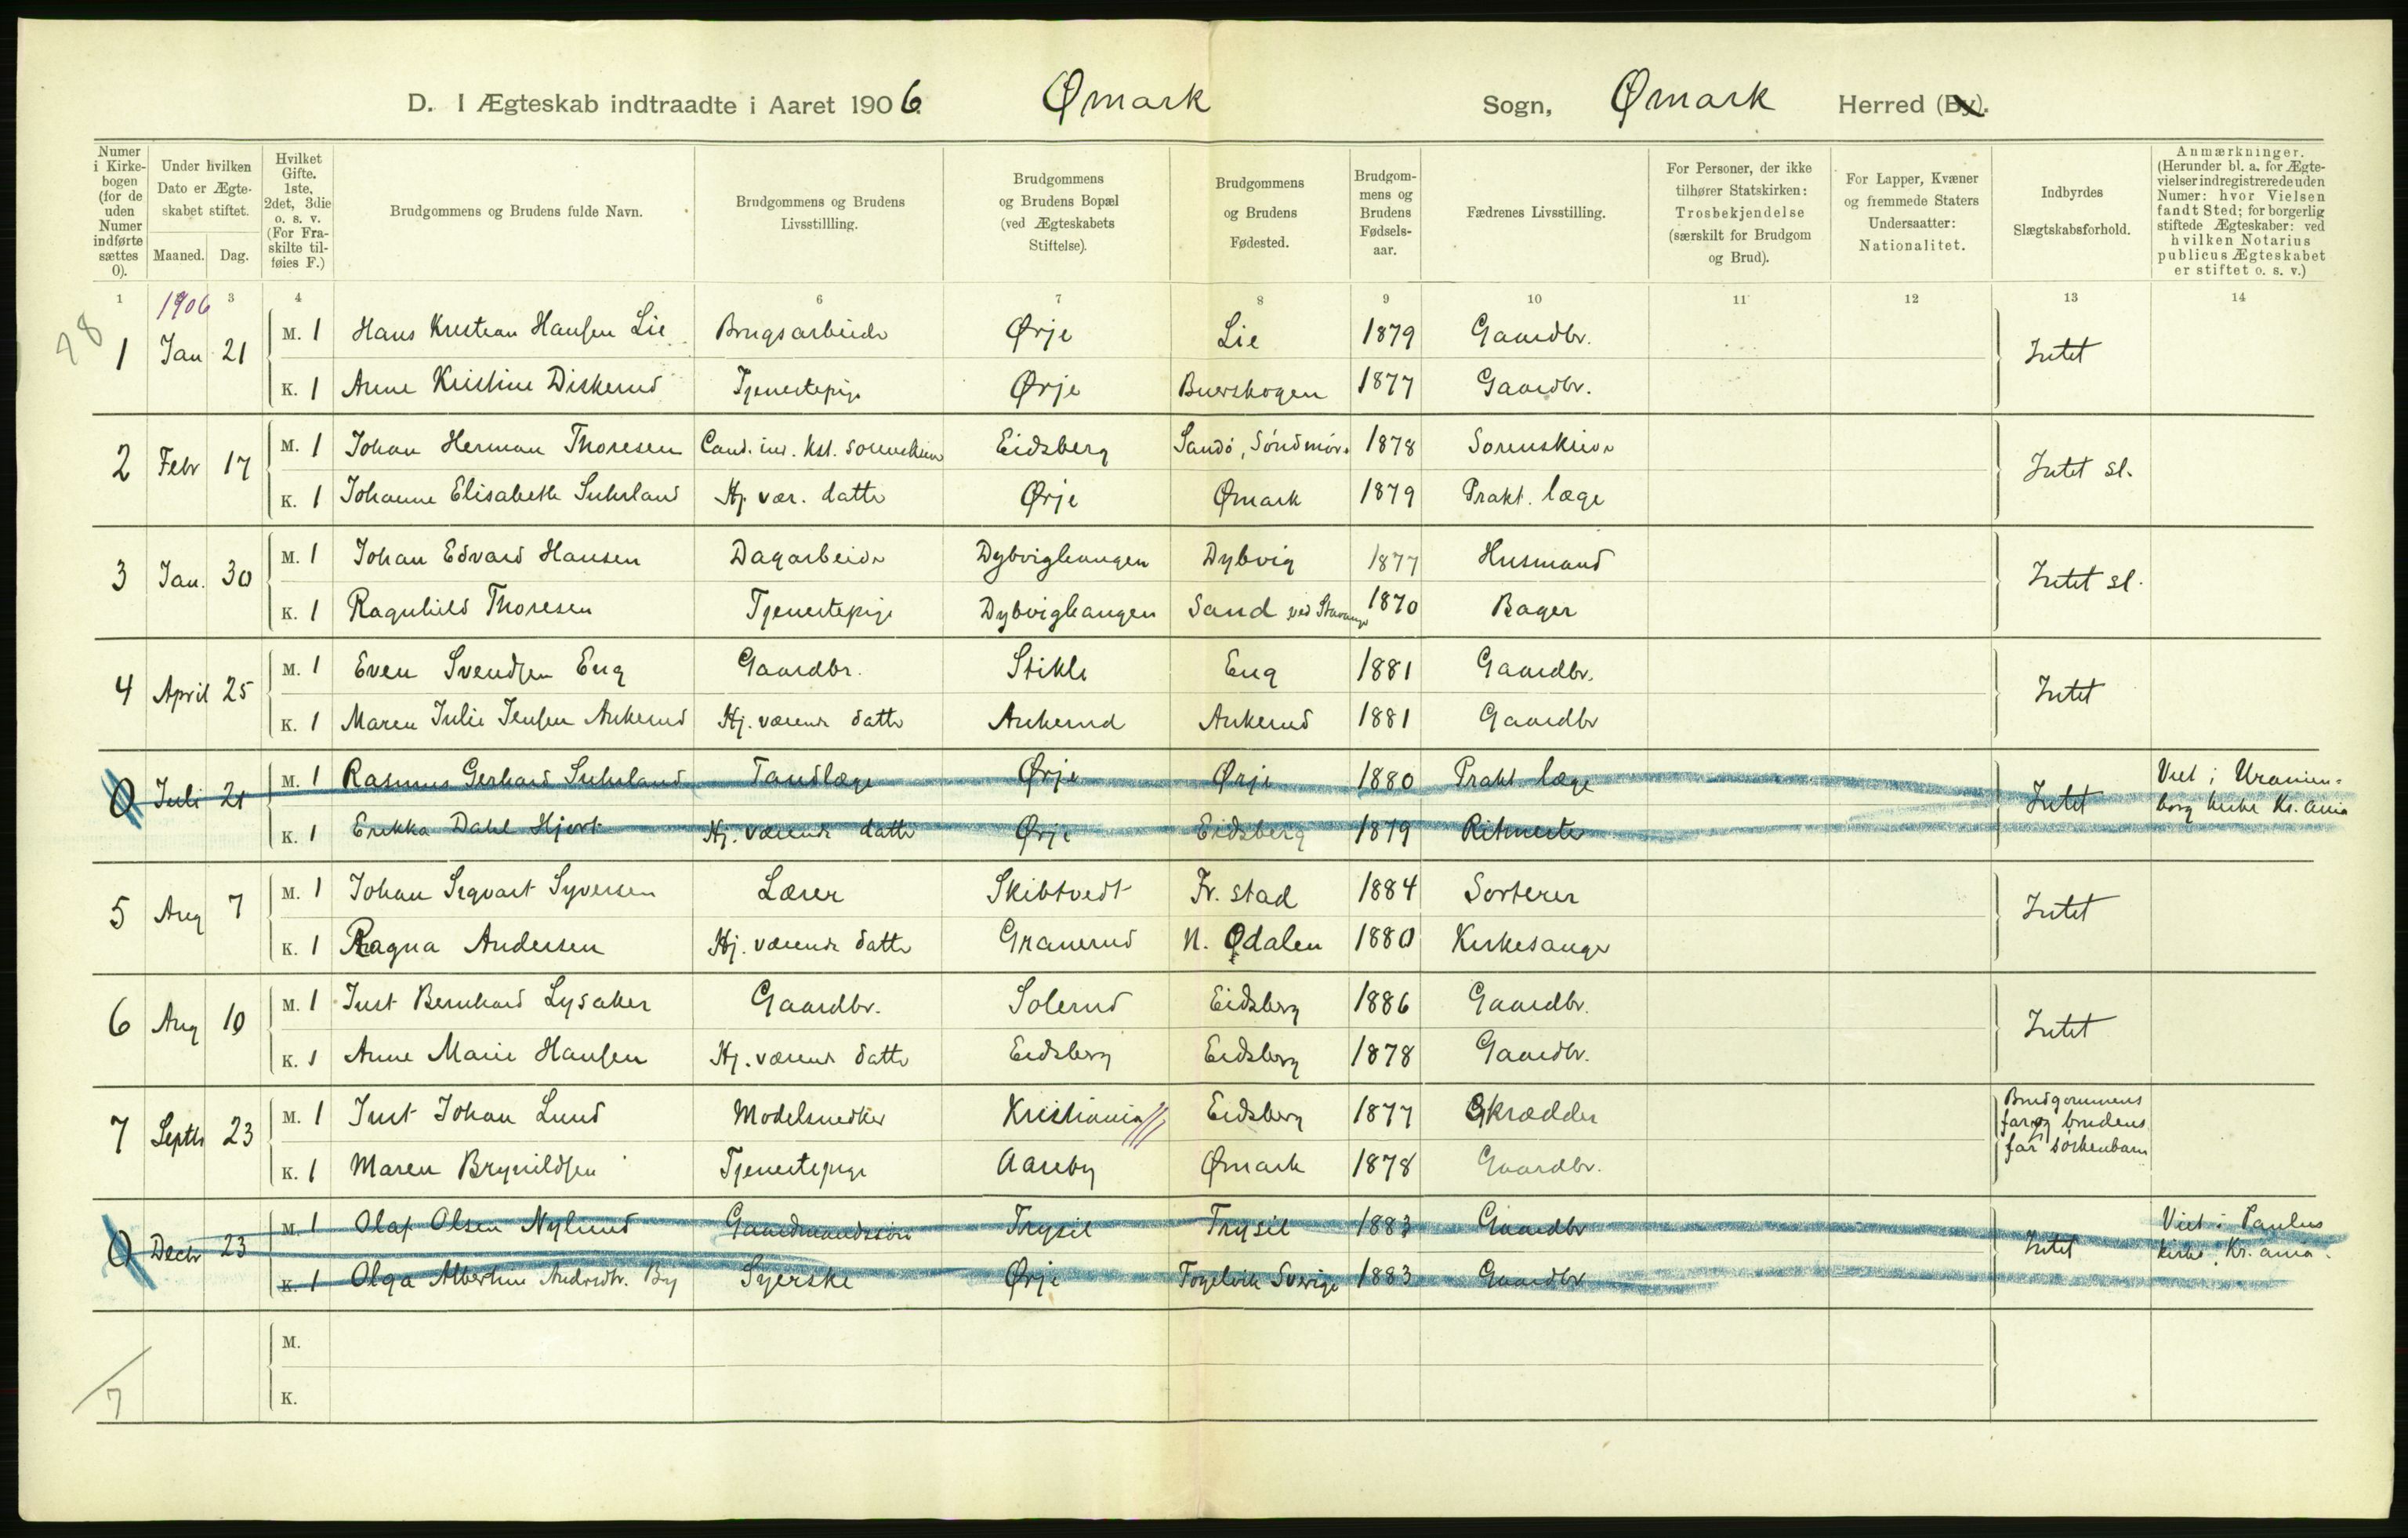 D. I Ægteskab indtraadte i Aaret 1906. Ømark Sogn, Ømark Herred (By).
Numer i Kirkebogen (for de uden Numer indførte sættes 0).
Under hvilken Dato er Ægteskabet stiftet.
Maaned. Dag.
Hvilket Gifte. 1ste, 2det, 3die o. s. v. (For Fraskilte tilføies F.)
Brudgommens og Brudens fulde Navn.
Brudgommens og Brudens Livsstillling.
Brudgommens og Brudens Bopæl (ved Ægteskabets Stiftelse).
Brudgommens og Brudens Fødested.
Brudgommens og Brudens Fødselsaar.
Fædrenes Livsstilling.
For Personer, der ikke tilhører Statskirken: Trosbekjendelse (særskilt for Brudgom og Brud).
For Lapper, Kvæner og fremmede Staters Undersaatter: Nationalitet.
Indbyrdes Slægtskabsforhold.
Anmærkninger. (Herunder bl. a. for Ægtevielser indregistrerede uden Numer: hvor Vielsen fandt Sted; for borgerlig stiftede Ægteskaber: ved hvilken Notarius publicus Ægteskabet er stiftet o. s. v.)
1 3 4 6 7 8 9 10 11 12 13 14
1906
98
1 Jan 21 M. 1 Hans Kristian Hansen Lie Brugsarbeide Ørje Lie 1879 Gaardbr. Intet
K. 1 Anne Kristine Diskerud Tjenestepige Ørje Buerskogen 1877 Gaardbr.
2 Febr 17 M. 1 Johan Herman Thoresen Cand. jur. kst. sorenskriver Eidsberg Sandö, Söndmör 1878 Sorenskriver Intet sl.
K. 1 Johanne Elisabeth Suhrland Hj. vær. datter Ørje Ømark 1879 Prakt. læge
3 Jan. 30 M. 1 Johan Edvard Hansen Dagarbeider Dybvighaugen Dybvig 1877 Husmand Intet sl.
K. 1 Ragnhild Thoresen Tjenestepige Dybvighaugen Sand ved Stavanger 1870 Bager
4 April 25 M. 1 Even Svendsen Eng Gaardbr. Stikle Eng 1881 Gaardbr. Intet
K. 1 Maren Julie Jensen Ankerud Hj. værende datter Ankerud Ankerud 1881 Gaardbr
0 Juli 21 M. 1 Rasmus Gerhard Suhrland Tandlæge Ørje Ørje 1880 Prakt. læge Intet Viet i Uranien-
K. 1 Erikka Dahl Hjort Hj. værende datter Ørje Eidsberg 1879 Ritmester borg kirke Kr.ania
5 Aug 7 M. 1 Johan Sigvart Syversen Lærer Skibtvedt Fr.stad 1884 Sorterer Intet
K. 1 Ragna Andersen Hj. værende datter Granerud N. Odalen 1880 Kirkesanger
6 Aug 10 M. 1 Just Bernhard Lysaker Gaardbr. Solerud Eidsberg 1886 Gaardbr. Intet
K. 1 Anne Marie Hansen Hj. værende datter Eidsberg Eidsberg 1878 Gaardbr.
7 Septbr 23 M. 1 Just Johan Lund Modelsnedker Kristiania Eidsberg 1877 Skrædder Brudgommens
far og brudens
far söskenbarn
K. 1 Maren Brynildsen Tjenestepige Aareby Ømark 1878 Gaardbr.
0 Decbr 23 M. 1 Olaf Olsen Nylund Gaardmandssön Trysil Trysil 1883 Gaardbr Intet Viet i Paulus
K. 1 Olga Albertine Andersdtr. By Syerske Ørje Fogelvik Sverige 1883 Gaardbr kirke, Kr.ania.
M.
K.
7